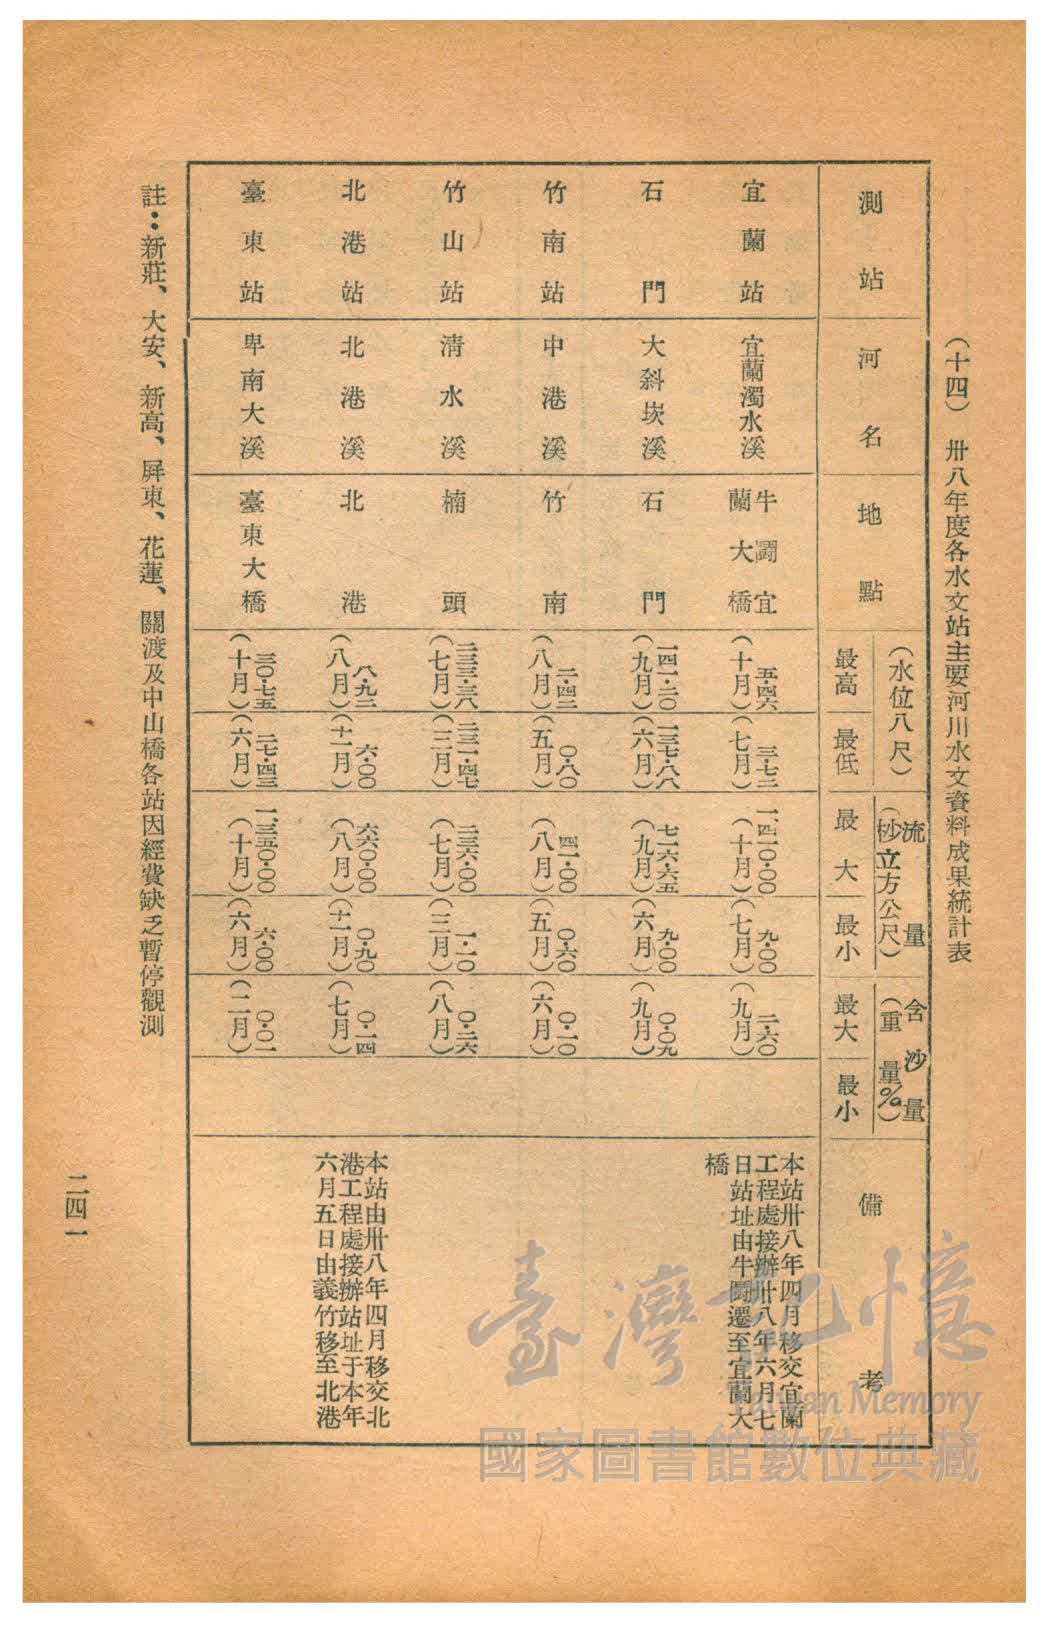 (十四) 卅八年度各水文站主要河川水文資料成果統計表
測站
河名
地點
(水位八尺)
最高
最低
流量
(秒立方公尺)
最大
最小
含沙量
(重量%)
最大
最小
備考
宜蘭站
宜蘭濁水溪
牛鬪宜
蘭大橋
五·四六
(十月)
三·七二
(七月)
一、四一〇·〇〇
(十月)
九·〇〇
(七月)
二·六〇
(九月)
本站卅八年四月移交宜蘭
工程處接辦卅八年六月七
日站址由牛鬪遷至宜蘭大
橋
石門
大斜崁溪
石門
一四一·二〇
(九月)
一三七·八八
(六月)
七一六·六五
(九月)
九·〇〇
(六月)
〇·〇九
(九月)
竹南站
中港溪
竹南
二·四二
(八月)
〇·八〇
(五月)
四一·〇〇
(八月)
〇·六〇
(五月)
〇·一〇
(六月)
竹山站
清水溪
楠頭
二三三·三八
(七月)
二三一·四七
(三月)
三三六·〇〇
(七月)
一·一〇
(三月)
〇·二六
(八月)
北港站
北港溪
北港
八·九二
(八月)
六·〇〇
(十一月)
六六〇·〇〇
(八月)
〇·九〇
(十一月)
〇·一四
(七月)
本站由卅八年四月移交北
港工程處接辦站址于本年
六月五日由義竹移至北港
臺東站
卑南大溪
臺東大橋
三〇·七五
(十月)
二七·四三
(六月)
一、三五〇·〇〇
(十月)
六·〇〇
(六月)
〇·〇一
(二月)
註：新莊、大安、新高、屛東、花蓮、關渡及中山橋各站因經費缺乏暫停觀測
二四一
臺灣記憶
Taiwan Memory
國家圖書館數位典藏